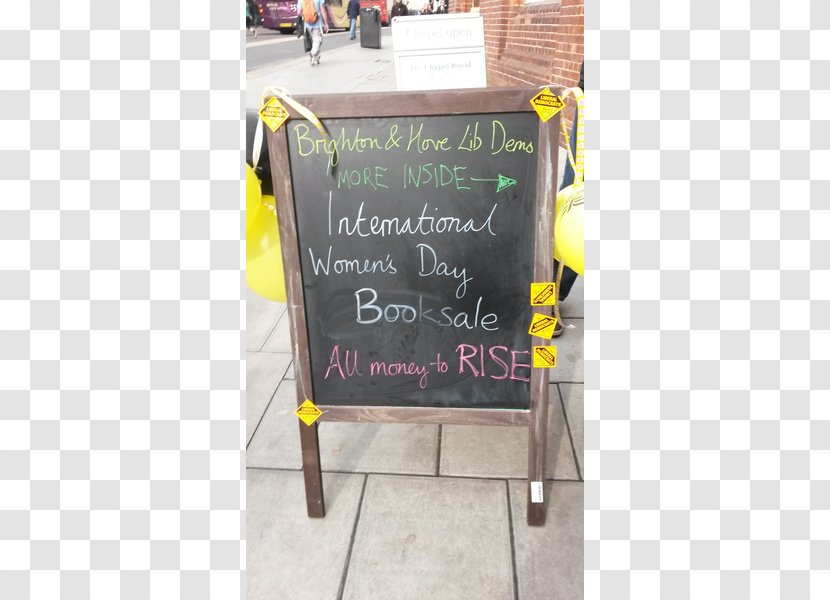 Chapel open
The Chapel Royal
LIBERAL DEMOCRATS
Brighton & Hove Lib Dems
MORE INSIDE
International
Women's Day
Booksale
All money to RISE